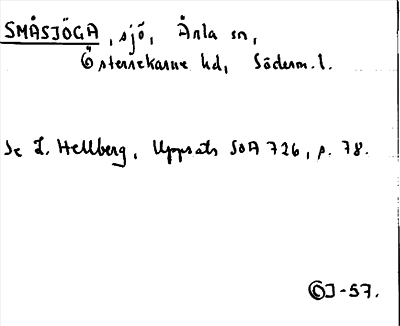 SMÅSJÖGA, sjö, Ärla sn,
Österrekarne hd, Söderm. l.
Se L. Hellberg, Uppsats SOA 726, p. 78.
ÖJ-57.